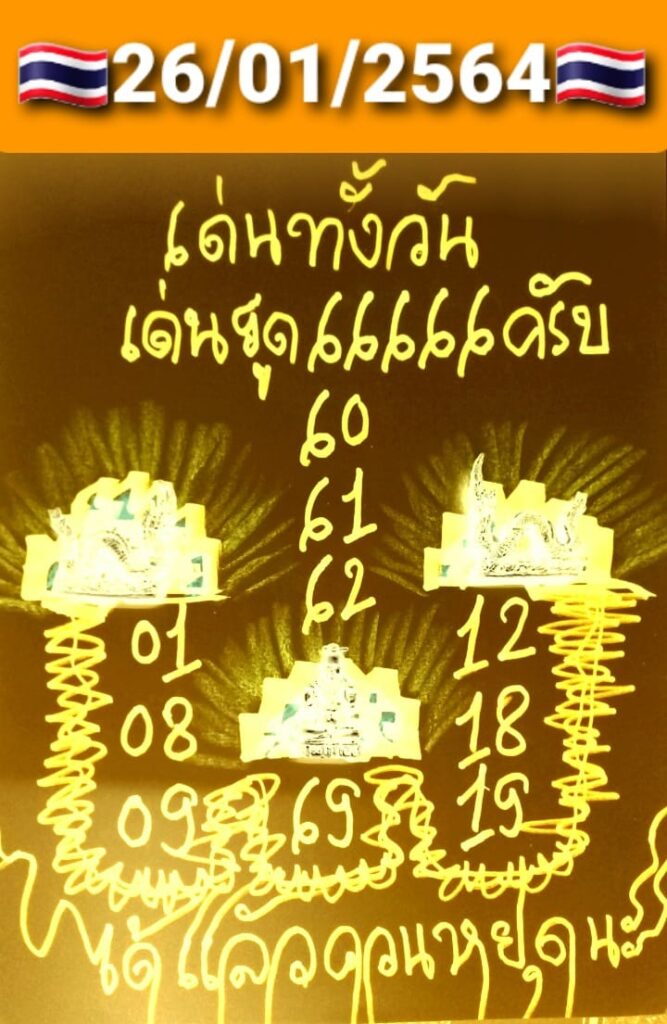 🇹🇭26/01/2564🇹🇭
เด่นทั้งวัน
เด่นรูด66666ครับ
60
61
62
01 12
08 18
09 69 19
ได้แลวควนหยุดนะ